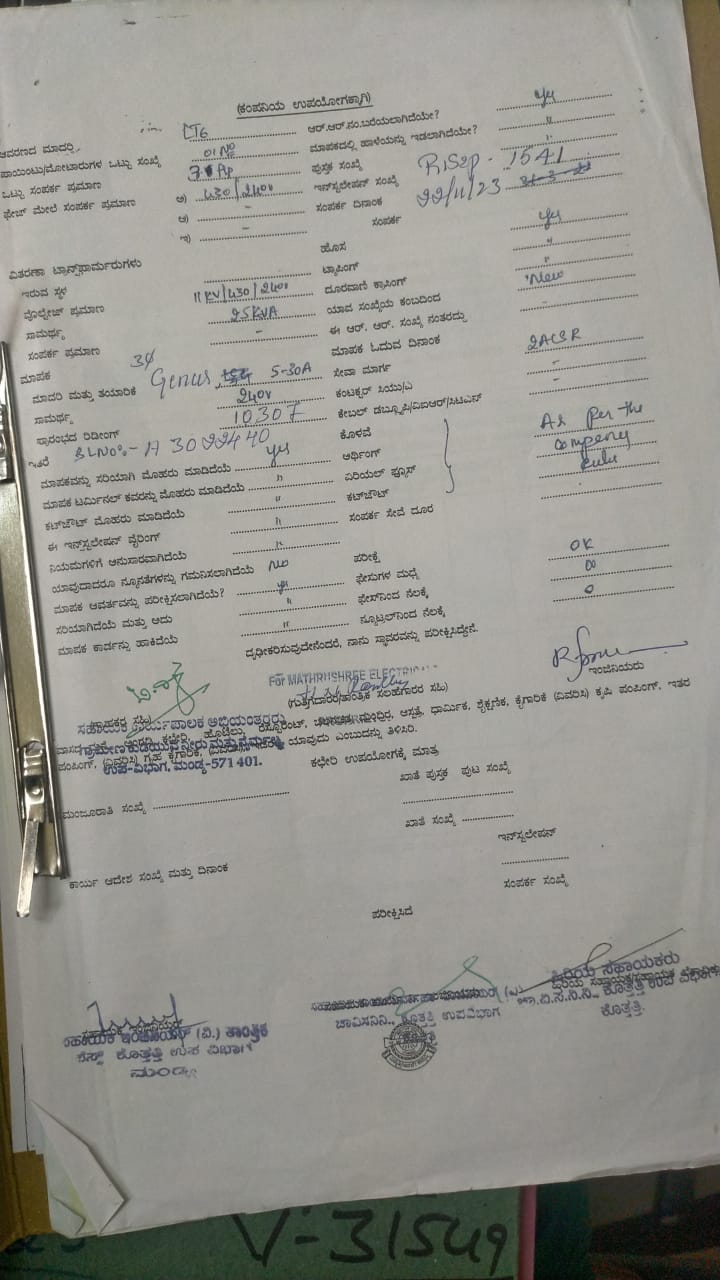 (ಕಂಪನಿಯ ಉಪಯೋಗಕ್ಕಾಗಿ)
ಆವರಣದ ಮಾದರಿ LT6 ಆರ್.ಆರ್.ನಂ.ಬರೆಯಲಾಗಿದೆಯೇ? yes
ಪಾಯಿಂಟು/ಮೋಟಾರುಗಳ ಒಟ್ಟು ಸಂಖ್ಯೆ 01 No ಮಾಪಕದಲ್ಲಿ ಹಾಳೆಯನ್ನು ಇಡಲಾಗಿದೆಯೇ? "
ಒಟ್ಟು ಸಂಪರ್ಕ ಪ್ರಮಾಣ ಪುಸ್ತಕ ಸಂಖ್ಯೆ "
ಫೇಜ್ ಮೇಲೆ ಸಂಪರ್ಕ ಪ್ರಮಾಣ ಅ) 430/240v ಇನ್‌ಸ್ಟಲೇಷನ್ ಸಂಖ್ಯೆ 1541
ಆ) - ಸಂಪರ್ಕ ದಿನಾಂಕ 22/11/23
ಇ) - ಸಂಪರ್ಕ
ವಿತರಣಾ ಟ್ರಾನ್ಸ್‌ಫಾರ್ಮರುಗಳು ಹೊಸ yes
ಇರುವ ಸ್ಥಳ ಟ್ಯಾಪಿಂಗ್ "
ವೋಲ್ಟೇಜ್ ಪ್ರಮಾಣ 11KV/430/240v ದೂರವಾಣಿ ಕ್ರಾಸಿಂಗ್ "
ಸಾಮರ್ಥ್ಯ 25KVA ಯಾವ ಸಂಖ್ಯೆಯ ಕಂಬದಿಂದ New
ಸಂಪರ್ಕ ಪ್ರಮಾಣ - ಈ ಆರ್. ಆರ್. ಸಂಖ್ಯೆ ನಂತರದ್ದು -
ಮಾಪಕ ಮಾಪಕ ಓದುವ ದಿನಾಂಕ
ಮಾದರಿ ಮತ್ತು ತಯಾರಿಕೆ Genus 5-30A ಸೇವಾ ಮಾರ್ಗ 2ACSR
ಸಾಮರ್ಥ್ಯ 240v ಕಂಟಕ್ಟರ್ ಸಿಯು/ಎ -
ಪ್ರಾರಂಭದ ರಿಡಿಂಗ್ 10307 ಕೇಬಲ್ ಡಬ್ಲ್ಯೂಪಿ/ವಿಐಆರ್/ಸಿಟಿಎಸ್ -
ಇತರೆ SLNo:- A 3022440 ಕೊಳವೆ
ಮಾಪಕವನ್ನು ಸರಿಯಾಗಿ ಮೊಹರು ಮಾಡಿದೆಯೆ yes ಅರ್ಥಿಂಗ್ As per the
ಮಾಪಕ ಟರ್ಮಿನಲ್ ಕವರನ್ನು ಮೊಹರು ಮಾಡಿದೆಯೆ " ಏರಿಯಲ್ ಫ್ಯೂಸ್ company
ಕಟ್‌ಔಟ್ ಮೊಹರು ಮಾಡಿದೆಯೆ " ಕಟ್‌ಔಟ್ rule
ಈ ಇನ್‌ಸ್ಟಲೇಷನ್ ವೈರಿಂಗ್ " ಸಂಪರ್ಕ ಸೇವೆ ದೂರ
ನಿಯಮಗಳಿಗೆ ಅನುಸಾರವಾಗಿದೆಯೆ "
ಯಾವುದಾದರೂ ನ್ಯೂನತೆಗಳನ್ನು ಗಮನಿಸಲಾಗಿದೆಯೆ No ಪರೀಕ್ಷೆ
ಮಾಪಕ ಆವರ್ತವನ್ನು ಪರೀಕ್ಷಿಸಲಾಗಿದೆಯೆ? yes ಫೇಸುಗಳ ಮಧ್ಯೆ OK
ಸರಿಯಾಗಿದೆಯೆ ಮತ್ತು ಆದು " ಫೇಸ್‌ನಿಂದ ನೆಲಕ್ಕೆ ∞
ಮಾಪಕ ಕಾರ್ಡನ್ನು ಹಾಕಿದೆಯೆ " ನ್ಯೂಟ್ರಲ್‌ನಿಂದ ನೆಲಕ್ಕೆ 0
ದೃಢೀಕರಿಸುವುದೇನೆಂದರೆ, ನಾನು ಸ್ಥಾವರವನ್ನು ಪರೀಕ್ಷಿಸಿದ್ದೇನೆ.
For MATHRUSHREE ELECTRICALS
ಇಂಜಿನಿಯರು
(ಗುತ್ತಿಗೆದಾರರ/ತಾಂತ್ರಿಕ ಸಲಹೆಗಾರರ ಸಹಿ)
ಗ್ರಾಹಕರ ಸಹಿ
ಸಹಾಯಕ ಕಾರ್ಯಪಾಲಕ ಅಭಿಯಂತರರು
ಗ್ರಾಮೀಣ ಕುಡಿಯುವ ನೀರು ಮತ್ತು ನೈರ್ಮಲ್ಯ
ಉಪ-ವಿಭಾಗ, ಮಂಡ್ಯ-571 401.
ಆಸ್ಪತ್ರೆ, ಧಾರ್ಮಿಕ, ಶೈಕ್ಷಣಿಕ, ಕೈಗಾರಿಕೆ (ವಿವರಿಸಿ) ಕೃಷಿ ಪಂಪಿಂಗ್, ಇತರ
ಪಂಪಿಂಗ್, (ವಿವರಿಸಿ) ಗೃಹ ಕೈಗಾರಿಕೆ, ಯಾವುದು ಎಂಬುದನ್ನು ತಿಳಿಸಿರಿ.
ಕಛೇರಿ ಉಪಯೋಗಕ್ಕೆ ಮಾತ್ರ
ಖಾತೆ ಪುಸ್ತಕ ಪುಟ ಸಂಖ್ಯೆ
ಮಂಜೂರಾತಿ ಸಂಖ್ಯೆ
ಖಾತೆ ಸಂಖ್ಯೆ
ಇನ್‌ಸ್ಟಲೇಷನ್
ಕಾರ್ಯ ಆದೇಶ ಸಂಖ್ಯೆ ಮತ್ತು ದಿನಾಂಕ
ಸಂಪರ್ಕ ಸಂಖ್ಯೆ
ಪರೀಕ್ಷಿಸಿದೆ
ಹಿರಿಯ ಸಹಾಯಕರು
ಚಾವಿಸನಿನಿ., ಕೊತ್ತತ್ತಿ ಉಪವಿಭಾಗ
ಕೊತ್ತತ್ತಿ.
ಸಹಾಯಕ ಇಂಜಿನಿಯರ್ (ವಿ.) ತಾಂತ್ರಿಕ
ಕೊತ್ತತ್ತಿ ಉಪ ವಿಭಾಗ
ಮಂಡ್ಯ
V-31549